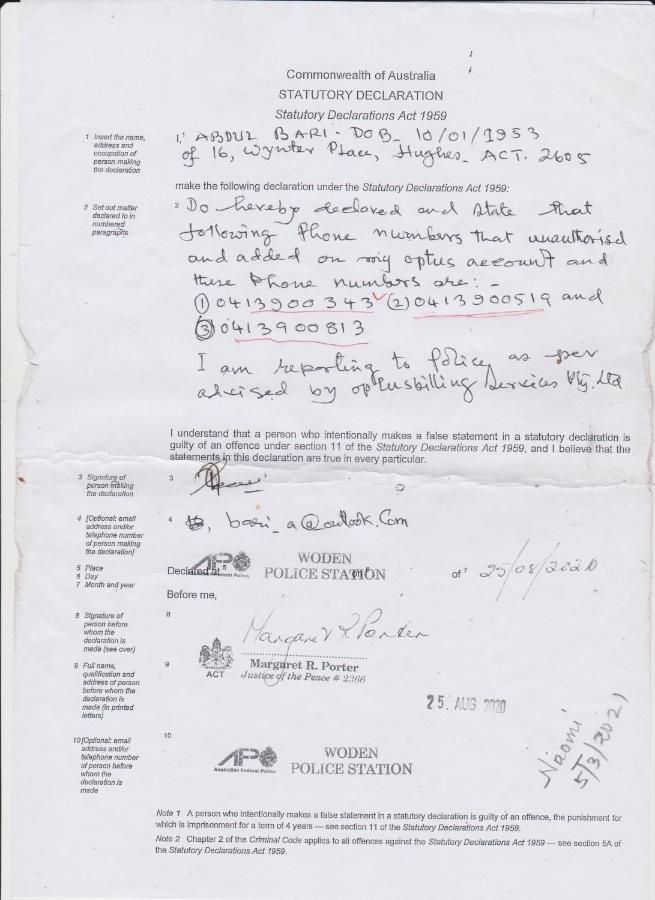 Commonwealth of Australia
STATUTORY DECLARATION
Statutory Declarations Act 1959
1 Insert the name,
address and
occupation of
person making
the declaration
I,¹ ABDUL BARI - DOB_ 10/01/1953
of 16, Wynter Place, Hughes_ ACT. 2605
make the following declaration under the Statutory Declarations Act 1959:
2 Set out matter
declared to in
numbered
paragraphs
2 Do hereby declared and state that
following Phone numbers that unauthorised
and added on my optus account and
these Phone numbers are: -
① 0413900343 ② 0413900519 and
③ 0413900813
I am reporting to Police, as per
advised by optusbilling Services Pty. Ltd
I understand that a person who intentionally makes a false statement in a statutory declaration is
guilty of an offence under section 11 of the Statutory Declarations Act 1959, and I believe that the
statements in this declaration are true in every particular.
3 Signature of
person making
the declaration
3
4 [Optional: email
address and/or
telephone number
of person making
the declaration]
4 bari_a@outlook.Com
5 Place
6 Day
7 Month and year
Declared at ⁵ AFP Australian Federal Police WODEN POLICE STATION on ⁶ of ⁷ 25/08/2020
Before me,
8 Signature of
person before
whom the
declaration is
made (see over)
8
Margaret R Porter
9 Full name,
qualification and
address of person
before whom the
declaration is
made (in printed
letters)
9
ACT
Margaret R. Porter
Justice of the Peace # 2366
25. AUG 2020
Naomi
5/3/2021
10 [Optional: email
address and/or
telephone number
of person before
whom the
declaration is
made
10
AFP
Australian Federal Police
WODEN
POLICE STATION
Note 1 A person who intentionally makes a false statement in a statutory declaration is guilty of an offence, the punishment for
which is imprisonment for a term of 4 years — see section 11 of the Statutory Declarations Act 1959.
Note 2 Chapter 2 of the Criminal Code applies to all offences against the Statutory Declarations Act 1959 — see section 5A of
the Statutory Declarations Act 1959.